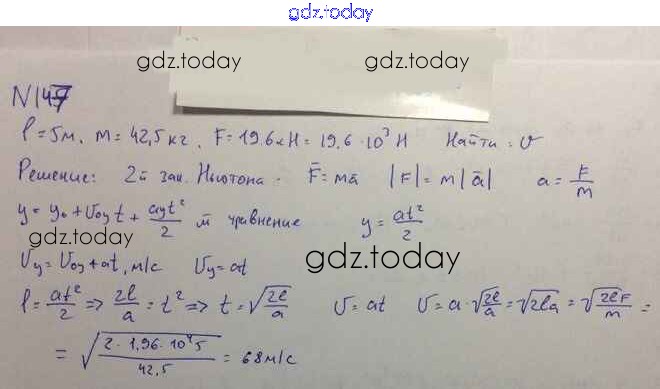 gdz.today
gdz.today gdz.today
N147
l = 5м. m = 42,5 кг. F = 19.6кН = 19,6 · 10³ Н Найти: υ
Решение: 2й зак. Ньютона - F̄ = mā |F̄| = m|ā| a = F/m
y = y₀ + υ₀yt + ayt²/2 м уравнение y = at²/2
gdz.today
gdz.today
υy = υ₀y + at, м/с υy = at
l = at²/2 => 2l/a = t² => t = √(2l/a) υ = at υ = a · √(2l/a) = √(2la) = √(2lF/m) =
= √(2 · 1,96 · 10⁴ 5/42,5) = 68 м/с